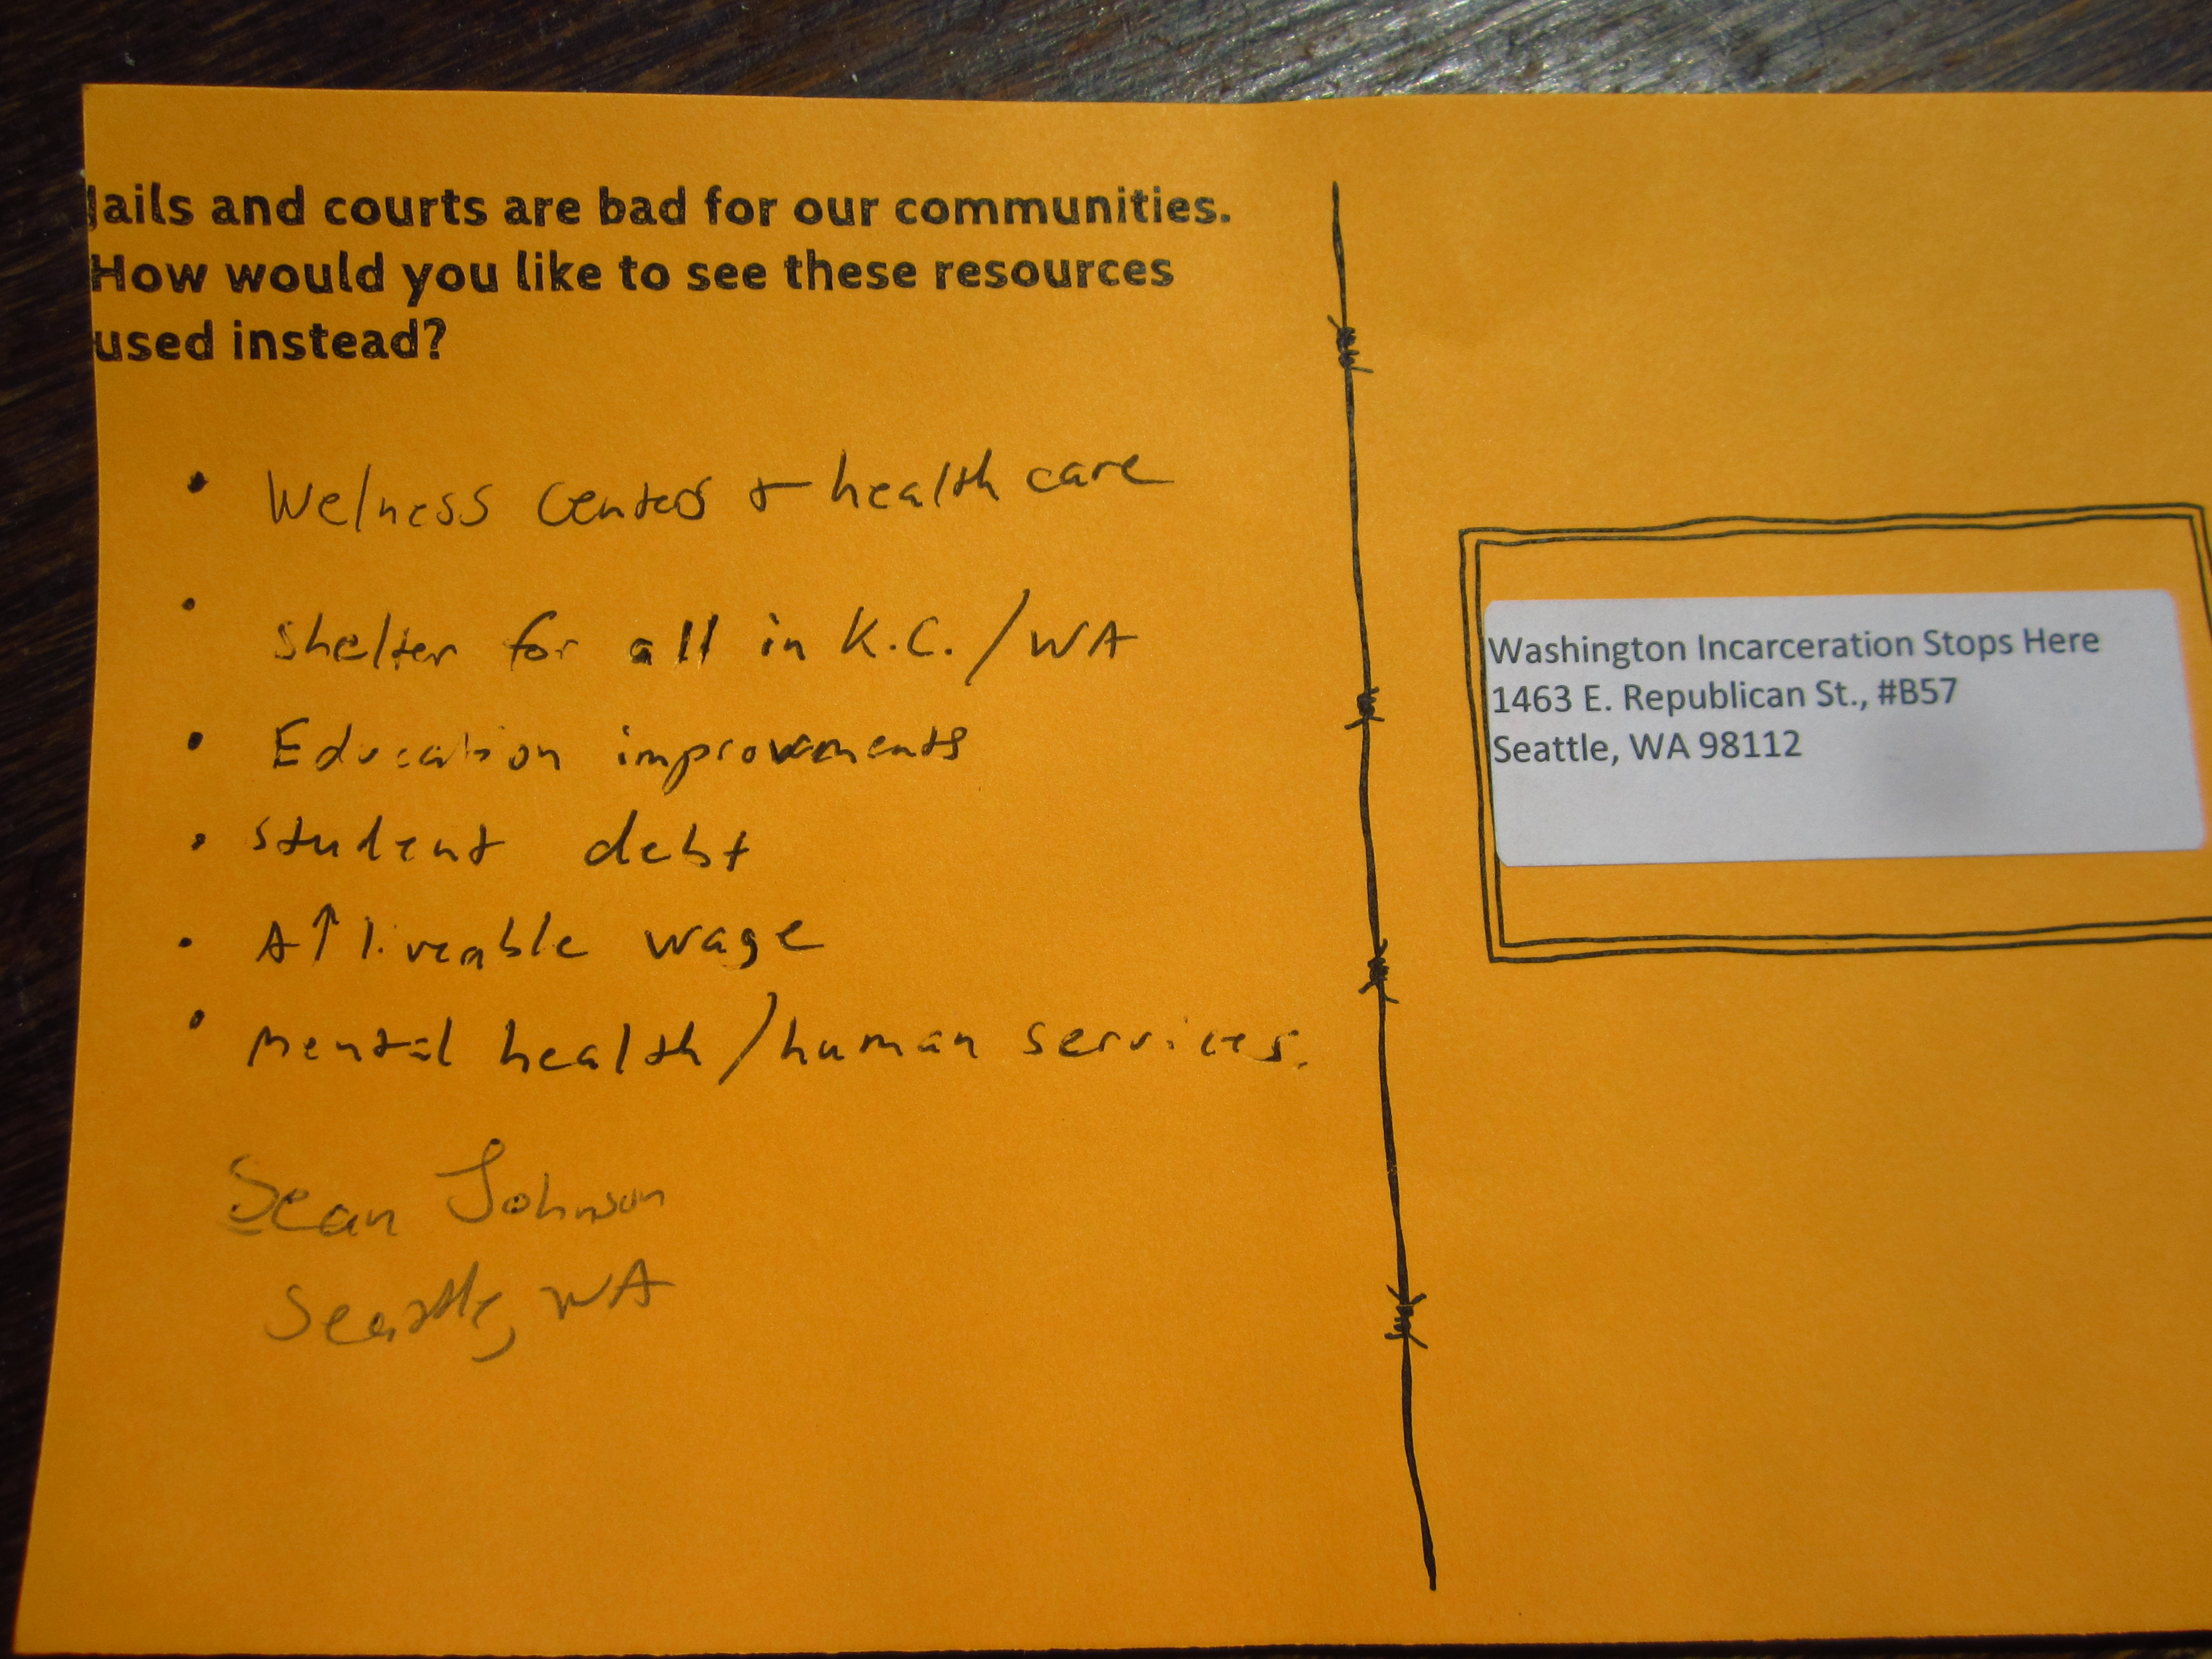 Jails and courts are bad for our communities.
How would you like to see these resources
used instead?
• Welness Centers + health care
• Shelter for all in K.C./WA
• Education improvements
• Student debt
• A↑ liveable wage
• Mental health/human services.
Sean Johnson
Seattle, WA
Washington Incarceration Stops Here
1463 E. Republican St., #B57
Seattle, WA 98112